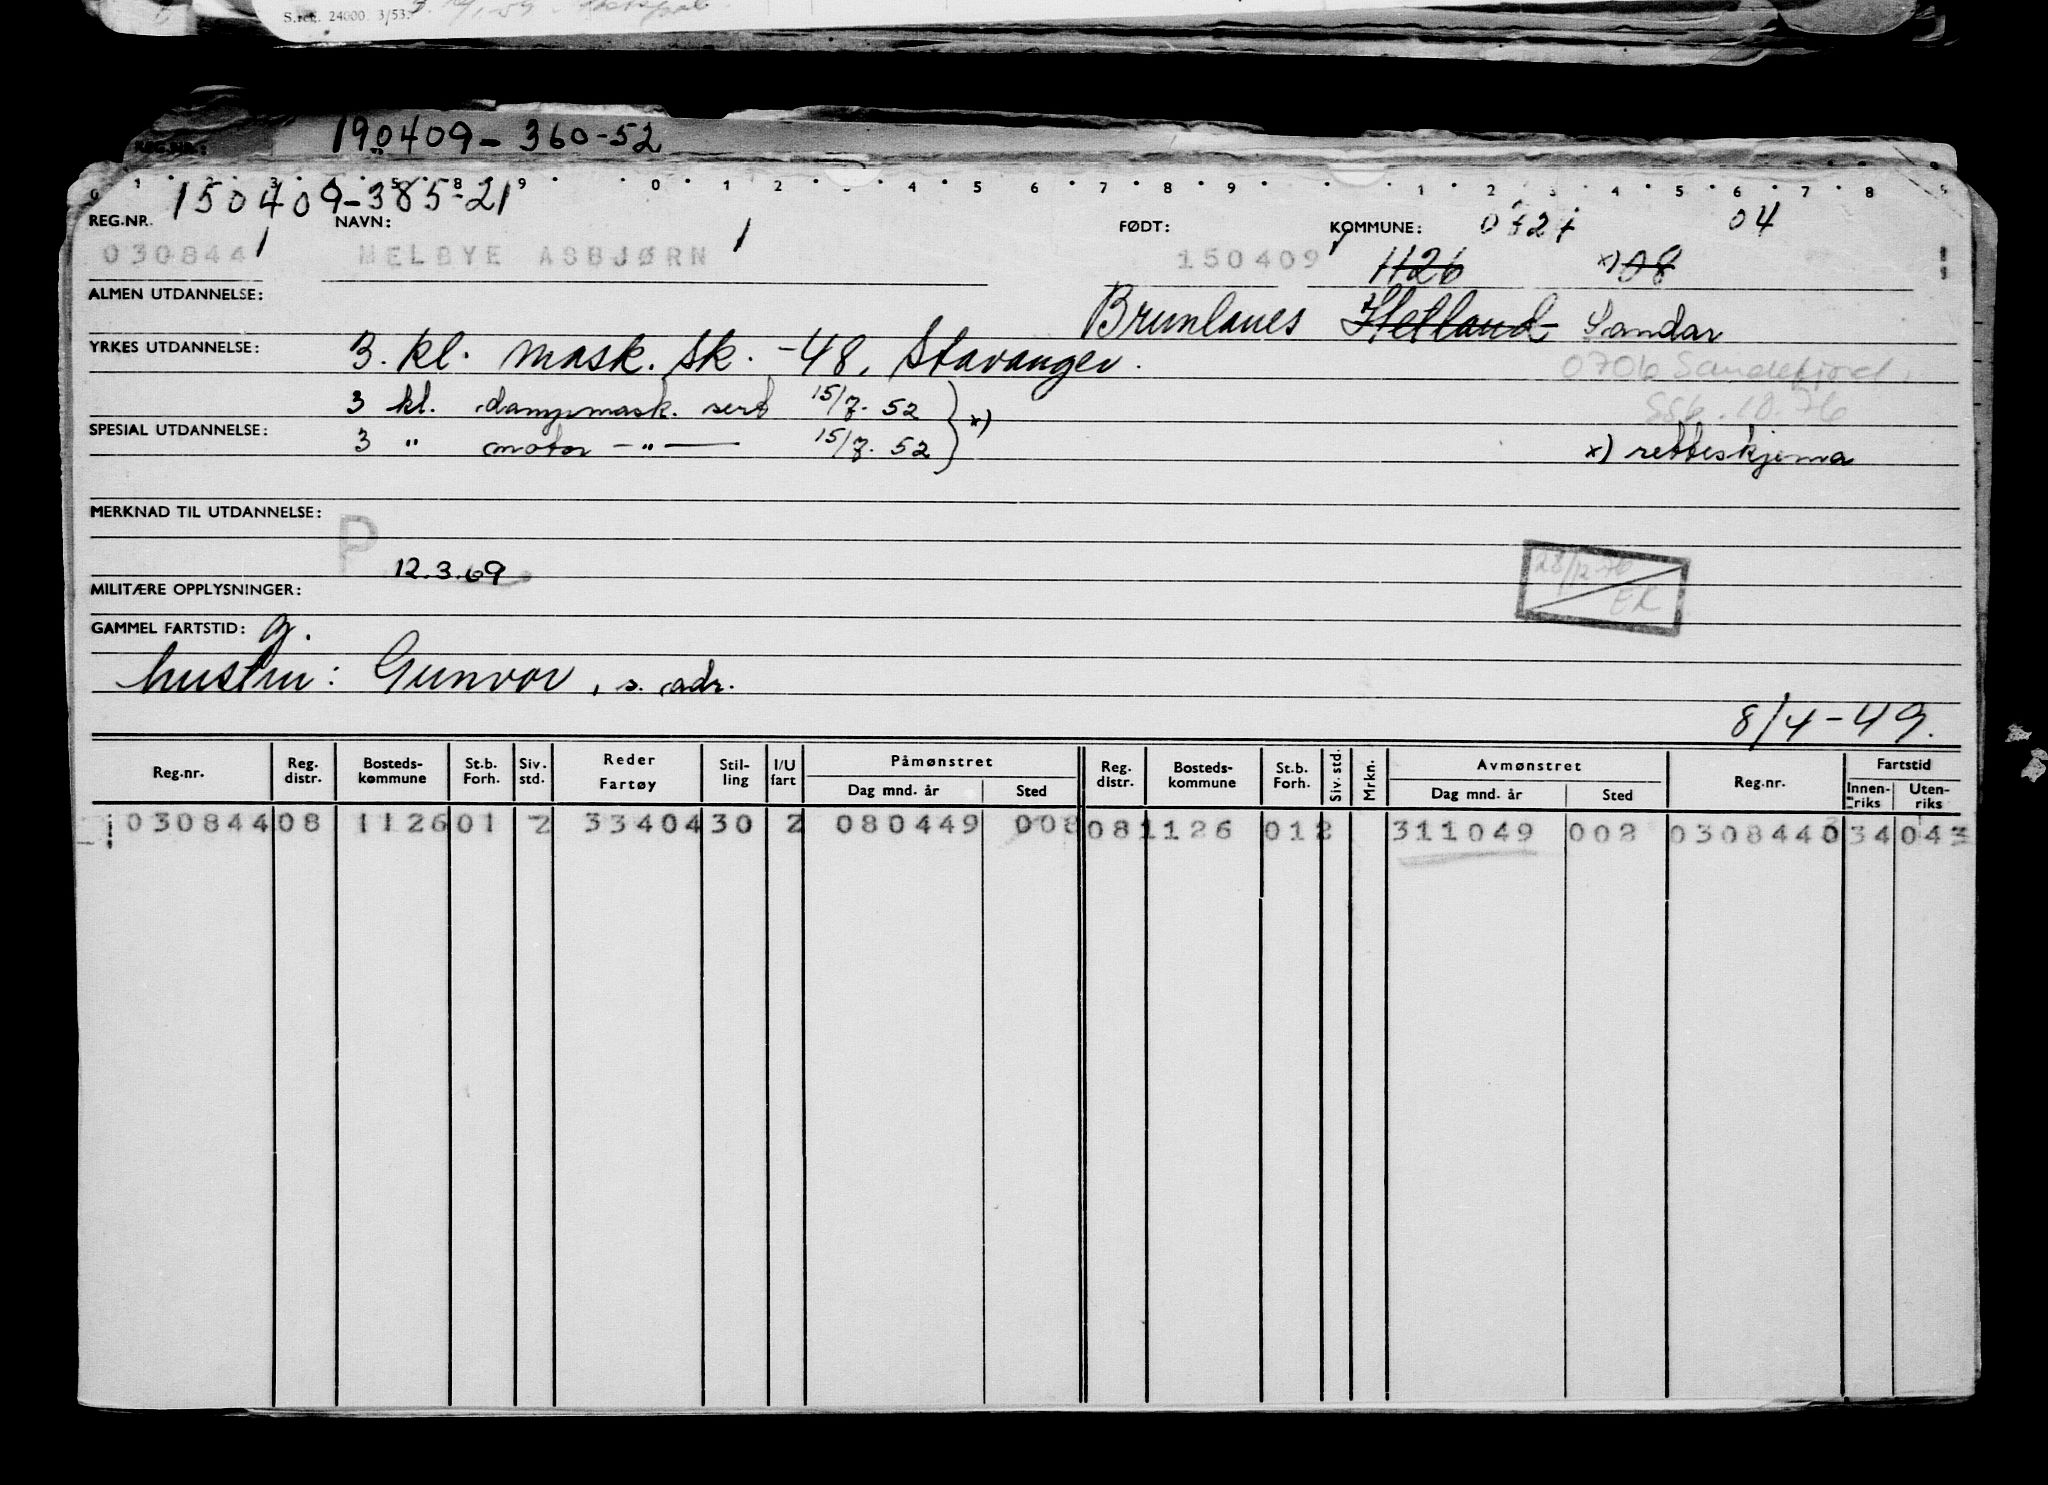 S.rek. 24000. 3/53.
REG.NR.: 190409-360-52
150409-385-21
REG.NR. NAVN: FØDT: KOMMUNE: 04
030844 MELBYE ASBJØRN 150409 1126 x) 08
ALMEN UTDANNELSE: Brunlanes Hetland Sandar
YRKES UTDANNELSE: 3. kl. mask. sk. -48, Stavanger.
0706 Sandefjord
3 kl. dampmask. sert 15/7. 52 x)
SPESIAL UTDANNELSE: 3 " motor - " - 15/7. 52 x) retteskjema
MERKNAD TIL UTDANNELSE:
P
12.3.69
28/12-76
ER
MILITÆRE OPPLYSNINGER:
GAMMEL FARTSTID: g.
hustru: Gunvor, s. adr.
8/4-49.
Reg.nr. Reg. distr. Bosteds-kommune St.b. Forh. Siv. std. Reder Fartøy Stil-ling I/U fart Påmønstret Dag mnd. år Sted Reg. distr. Bosteds-kommune St.b. Forh. Siv. std. Mrkn. Avmønstret Dag mnd. år Sted Reg.nr. Fartstid Innen-riks Uten-riks
030844 08 1126 01 2 33404 30 2 080449 008 08 1126 01 2 311049 002 030844 034 043